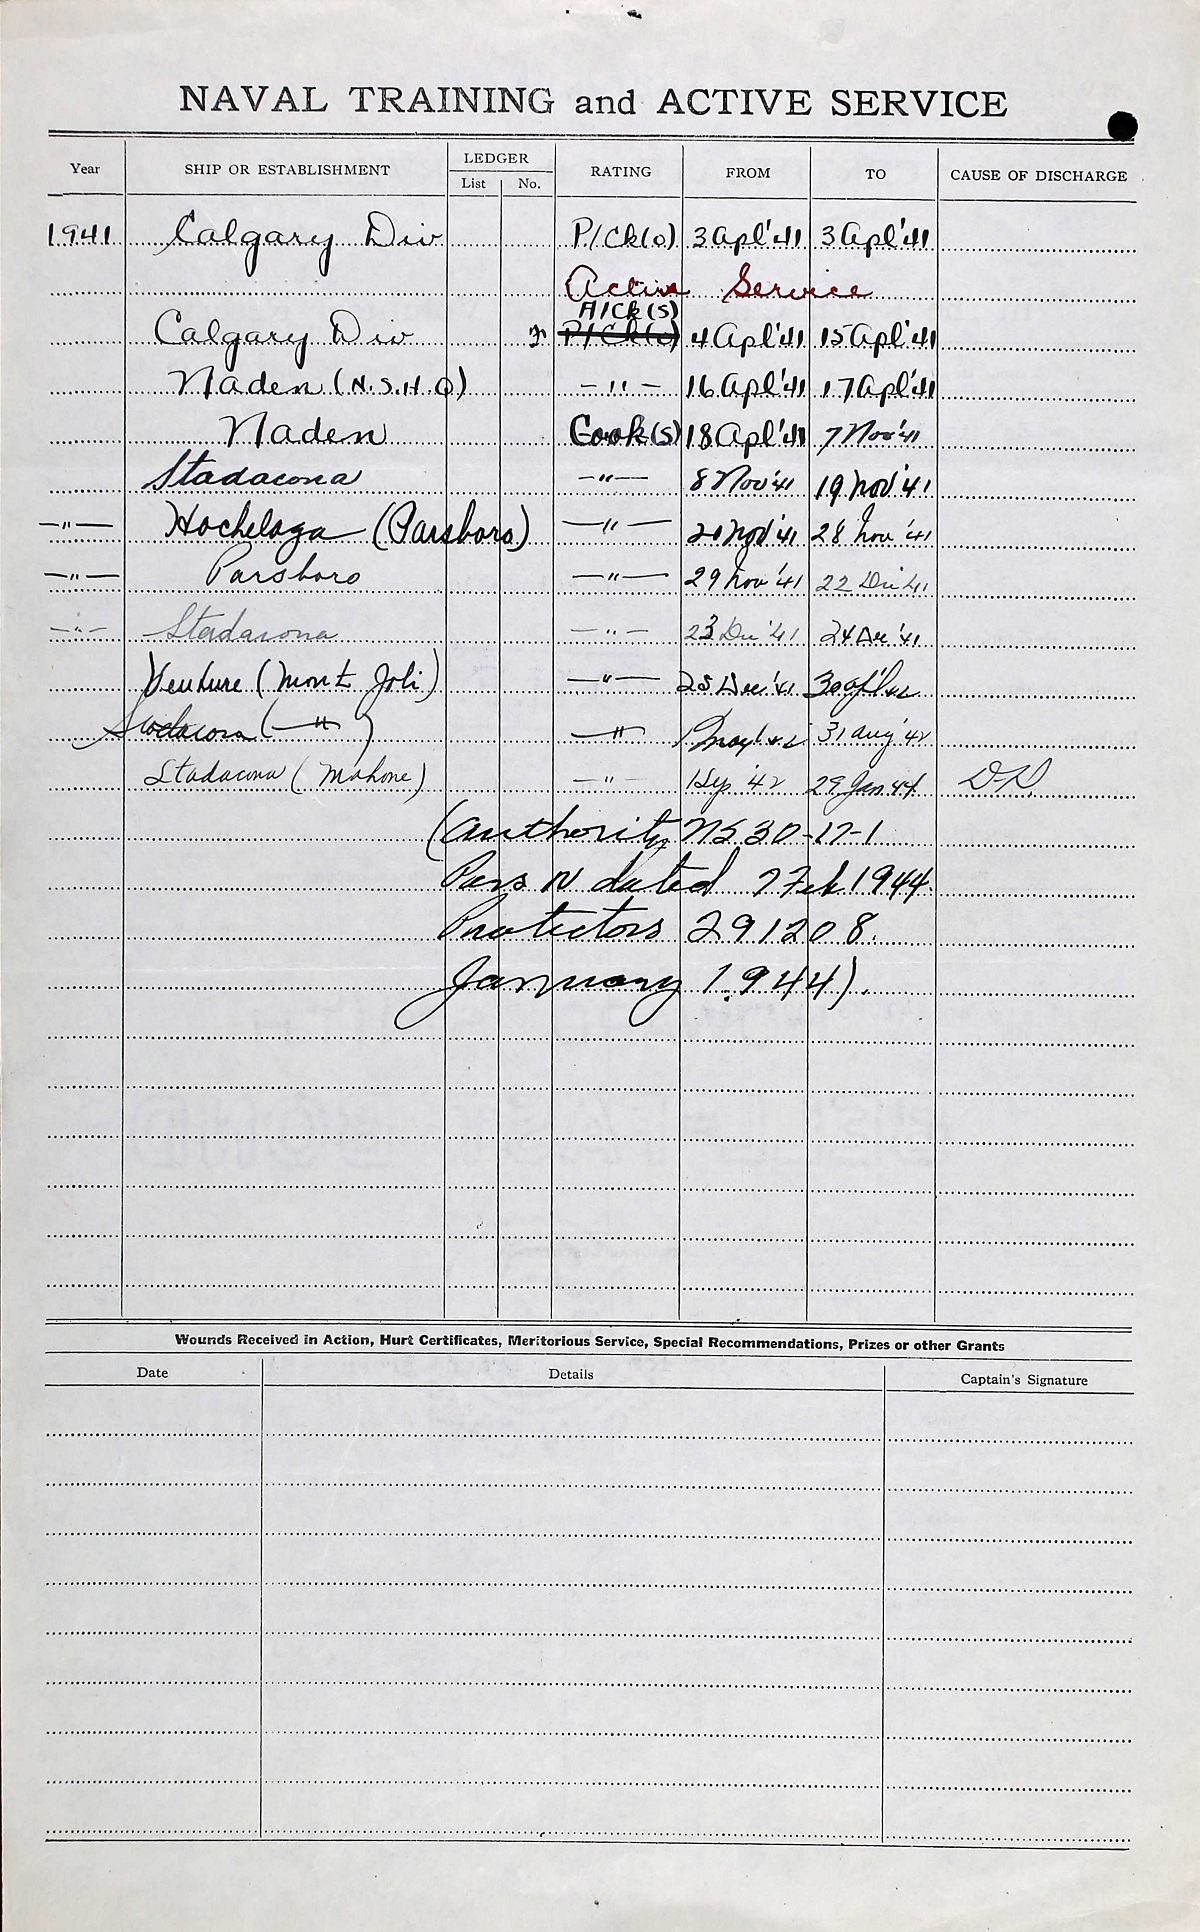 NAVAL TRAINING and ACTIVE SERVICE
Year SHIP OR ESTABLISHMENT LEDGER List No. RATING FROM TO CAUSE OF DISCHARGE
1941 Calgary Div P/Ck(o) 3 Apl '41 3 Apl '41
Active Service
A/Ck(s)
Calgary Div P/Ck(o) 4 Apl '41 15 Apl '41
Naden (N.S.H.Q) -"- 16 Apl '41 17 Apl '41
Naden Cook(s) 18 Apl '41 7 Nov '41
Stadacona -"- 8 Nov '41 19 Nov '41
-"- Hochelaga (Parsboro) -"- 20 Nov '41 28 Nov '41
-"- Parsboro -"- 29 Nov '41 22 Dec '41
-"- Stadacona -"- 23 Dec '41 24 Dec '41
Venture (Mont Joli) -"- 25 Dec '41 30 Apl '42
Stadacona (-"-) -"- 1 May '42 31 Aug '42
Stadacona (Mahone) -"- 1 Sep '42 29 Jan 44 DD
(Authority NS 30-17-1
Pers N dated 7 Feb 1944.
Protectors 291208.
January 1944).
Wounds Received in Action, Hurt Certificates, Meritorious Service, Special Recommendations, Prizes or other Grants
Date Details Captain's Signature